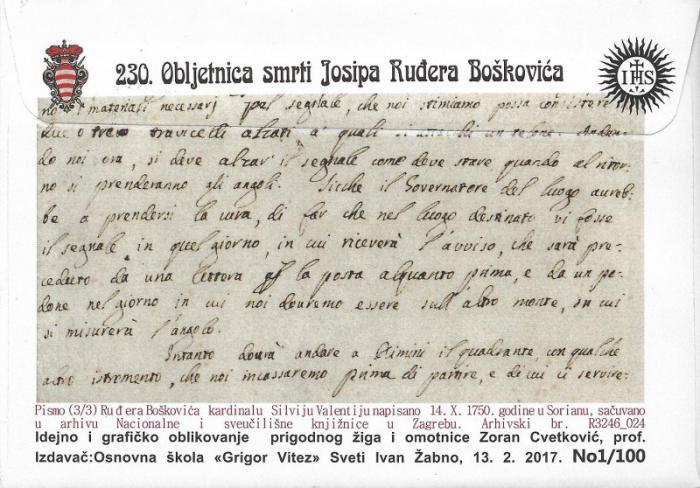 230. Obljetnica smrti Josipa Ruđera Boškovića
IHS
no i materiali necessarj pel segnale, che noi stimiamo possa consistere
due o tre travicelli alzati a' quali si attacchi un telone. Andan-
do noi ora, si deve alzar il segnale come deve stare quando al ritor-
no si prenderanno gli angoli. Sicche il Governatore del luogo avreb-
be a prendersi la cura, di far che nel luogo destinato vi fosse
il segnale in quel giorno, in cui riceverà l'avviso, che sarà pre-
ceduto da una lettera per la posta alquanto prima, e da un pe-
done nel giorno in cui noi dovremo essere sull'altro monte, su cui
si misurerà l'angolo.
Intanto dovrà andare a Rimini il quadrante, con qualche
altro istromento, che noi incasseremo prima di partire, e di cui ci servire-
Pismo (3/3) Ruđera Boškovića kardinalu Silviju Valentiju napisano 14. X. 1750. godine u Sorianu, sačuvano
u arhivu Nacionalne i sveučilišne knjižnice u Zagrebu. Arhivski br. R3246_024
Idejno i grafičko oblikovanje prigodnog žiga i omotnice Zoran Cvetković, prof.
Izdavač:Osnovna škola «Grigor Vitez» Sveti Ivan Žabno, 13. 2. 2017. No1/100